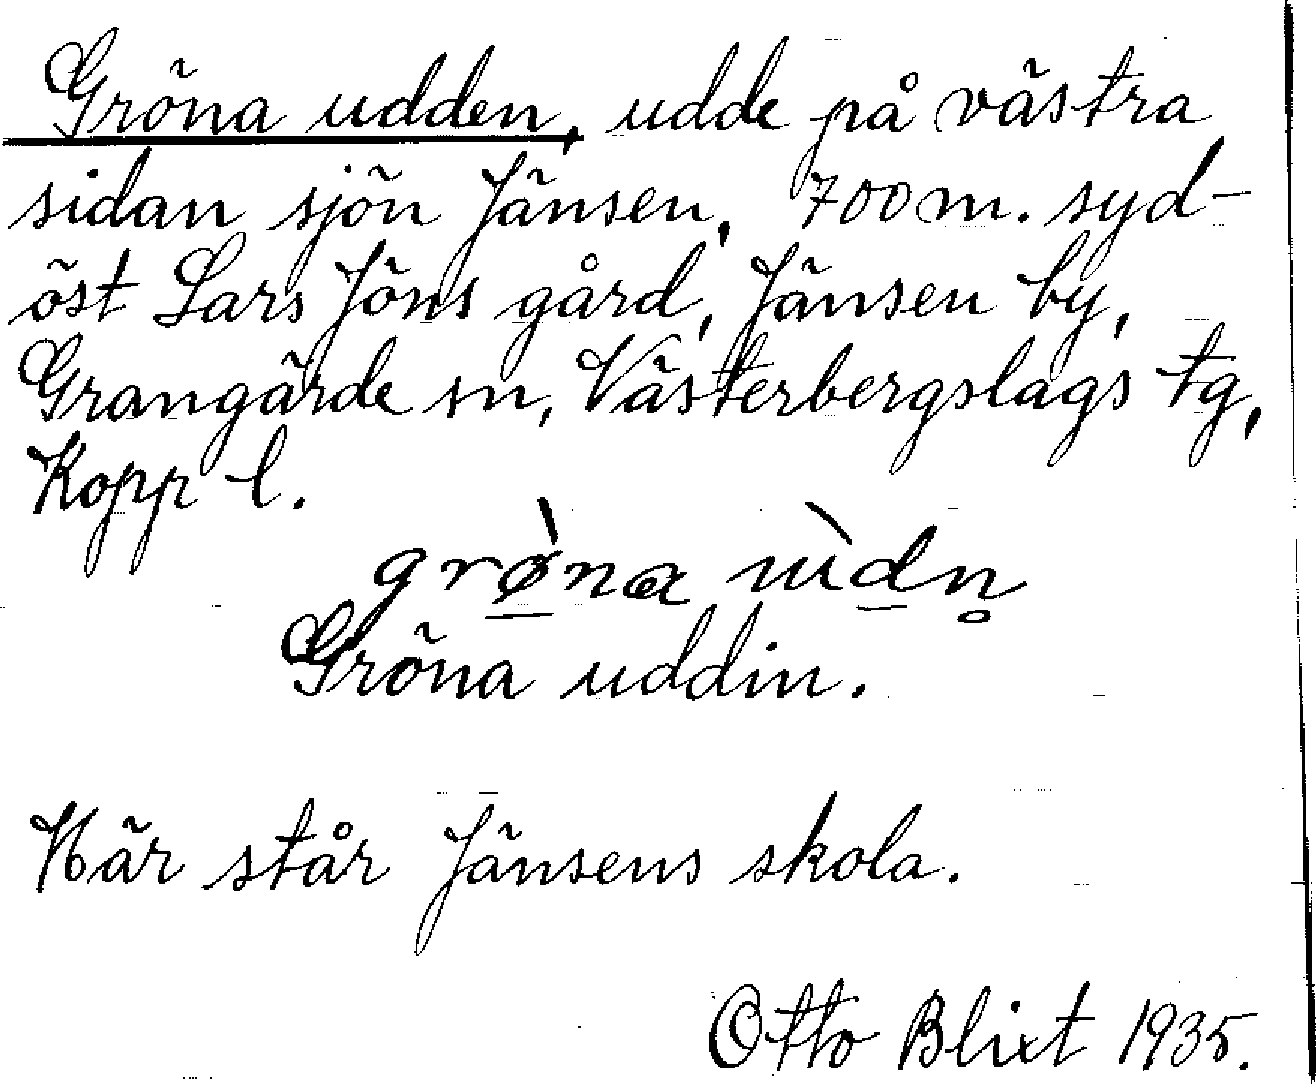 Gröna udden, udde på västra
sidan sjön Jänsen, 700 m. syd-
öst Lars Jöns gård, Jänsen by,
Grangärde sn, Västerbergslags tg,
Kopp l.
grø̠̀na ùd̠n̥
Gröna uddin.
Här står Jänsens skola.
Otto Blixt 1935.